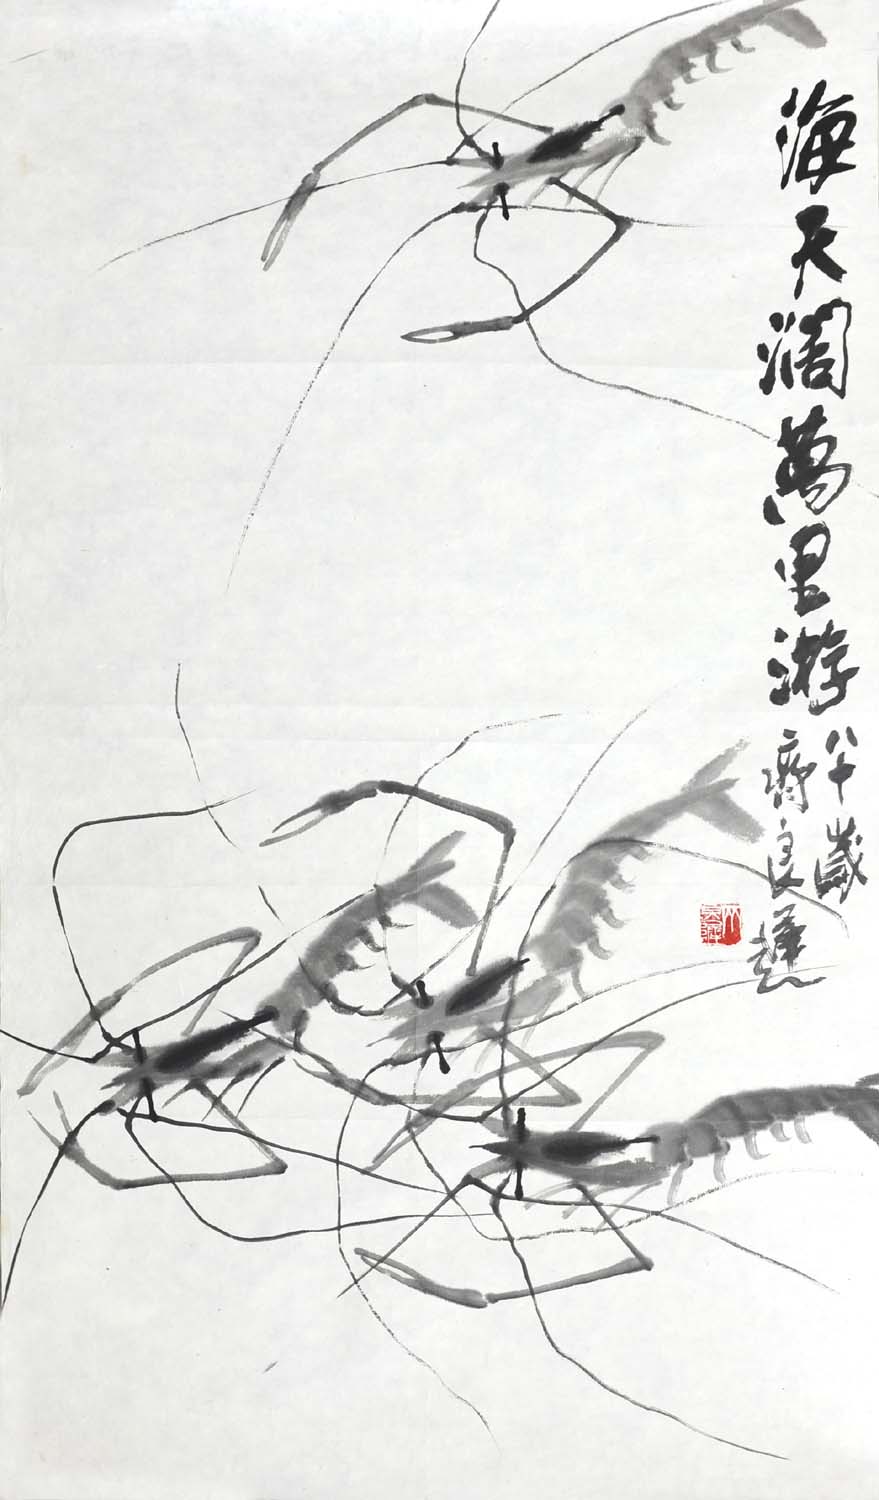 海天濶萬里游
八十歲
齊良遲